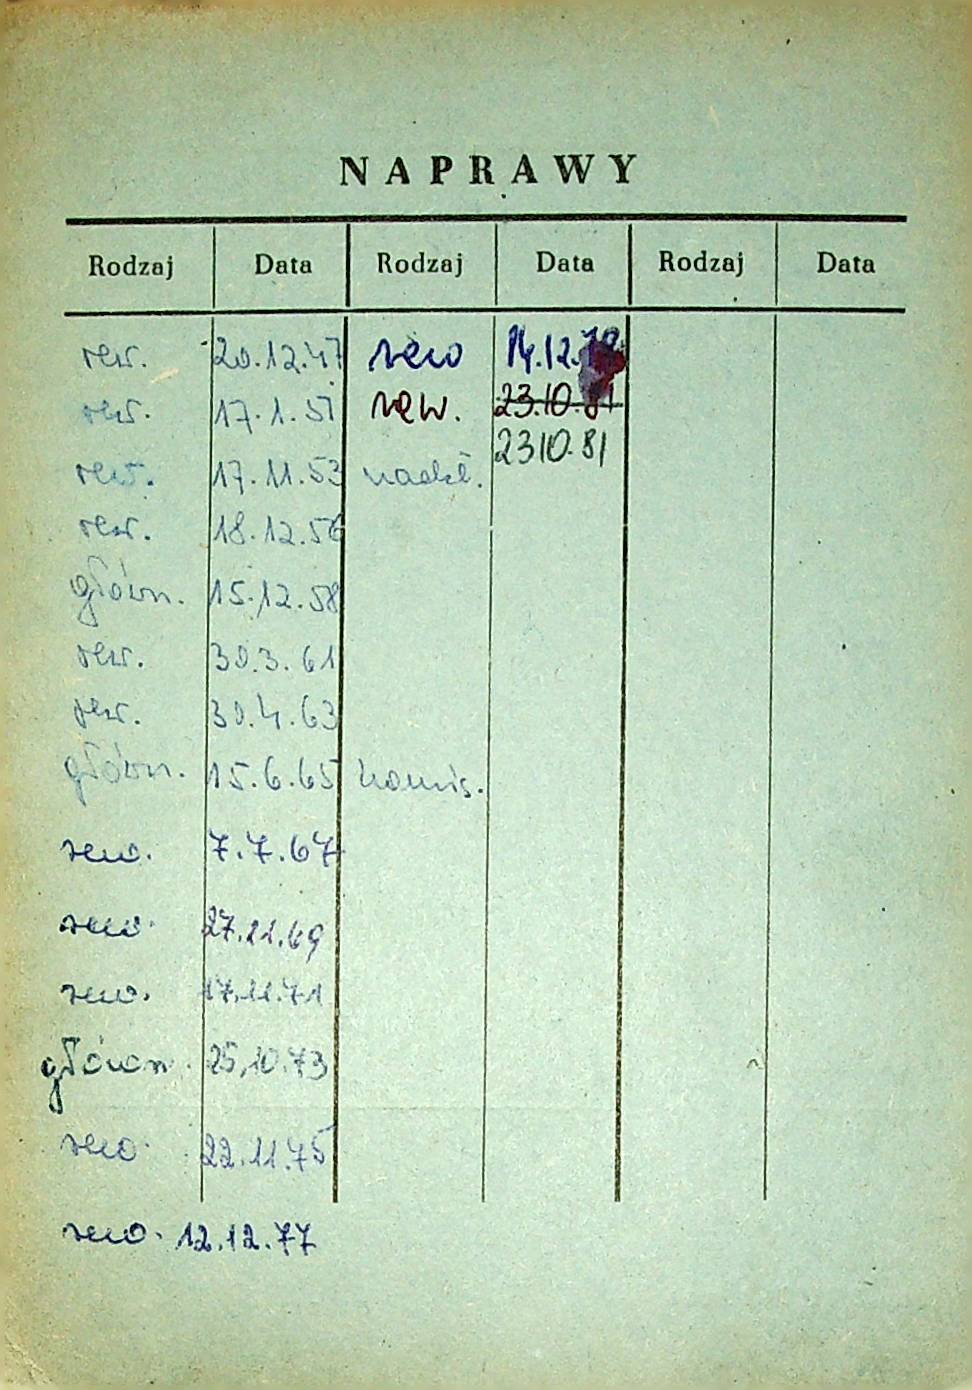 NAPRAWY
Rodzaj Data Rodzaj Data Rodzaj Data
rew. 20.12.47 rew 14.12.
rew. 17.1.51 rew. 23.10.81
23 10.81
rew. 17.11.53 nadzł.
rew. 18.12.56
główn. 15.12.58
rew. 30.3.61
rew. 30.4.63
główn. 15.6.65 komis.
rew. 7.7.67
rew. 27.11.69
rew. 17.11.71
główn. 25.10.73
rew. 22.11.75
rew. 12.12.77